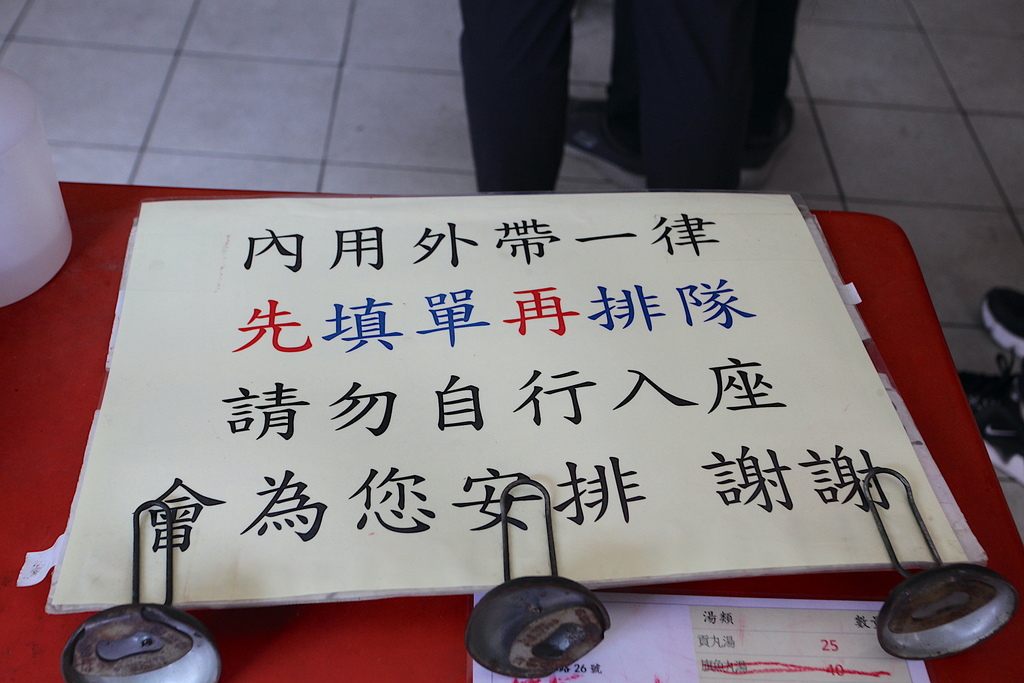 內用外帶一律
先填單再排隊
請勿自行入座
會為您安排 謝謝
湯類
貢丸湯 25
40
26號